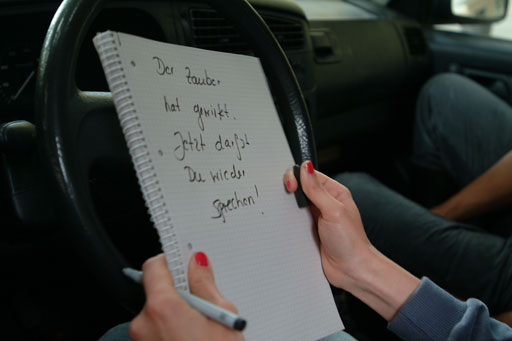 Der Zauber
hat gewirkt.
Jetzt darfst
Du wieder
sprechen!